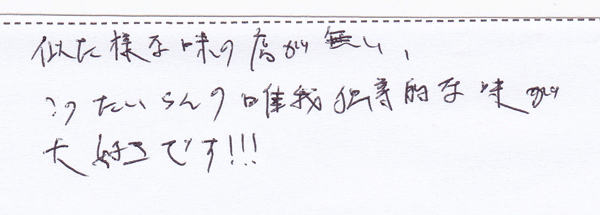 似た様な味の店が無い、
このたいらんの唯我独尊的な味が
大好きです!!!